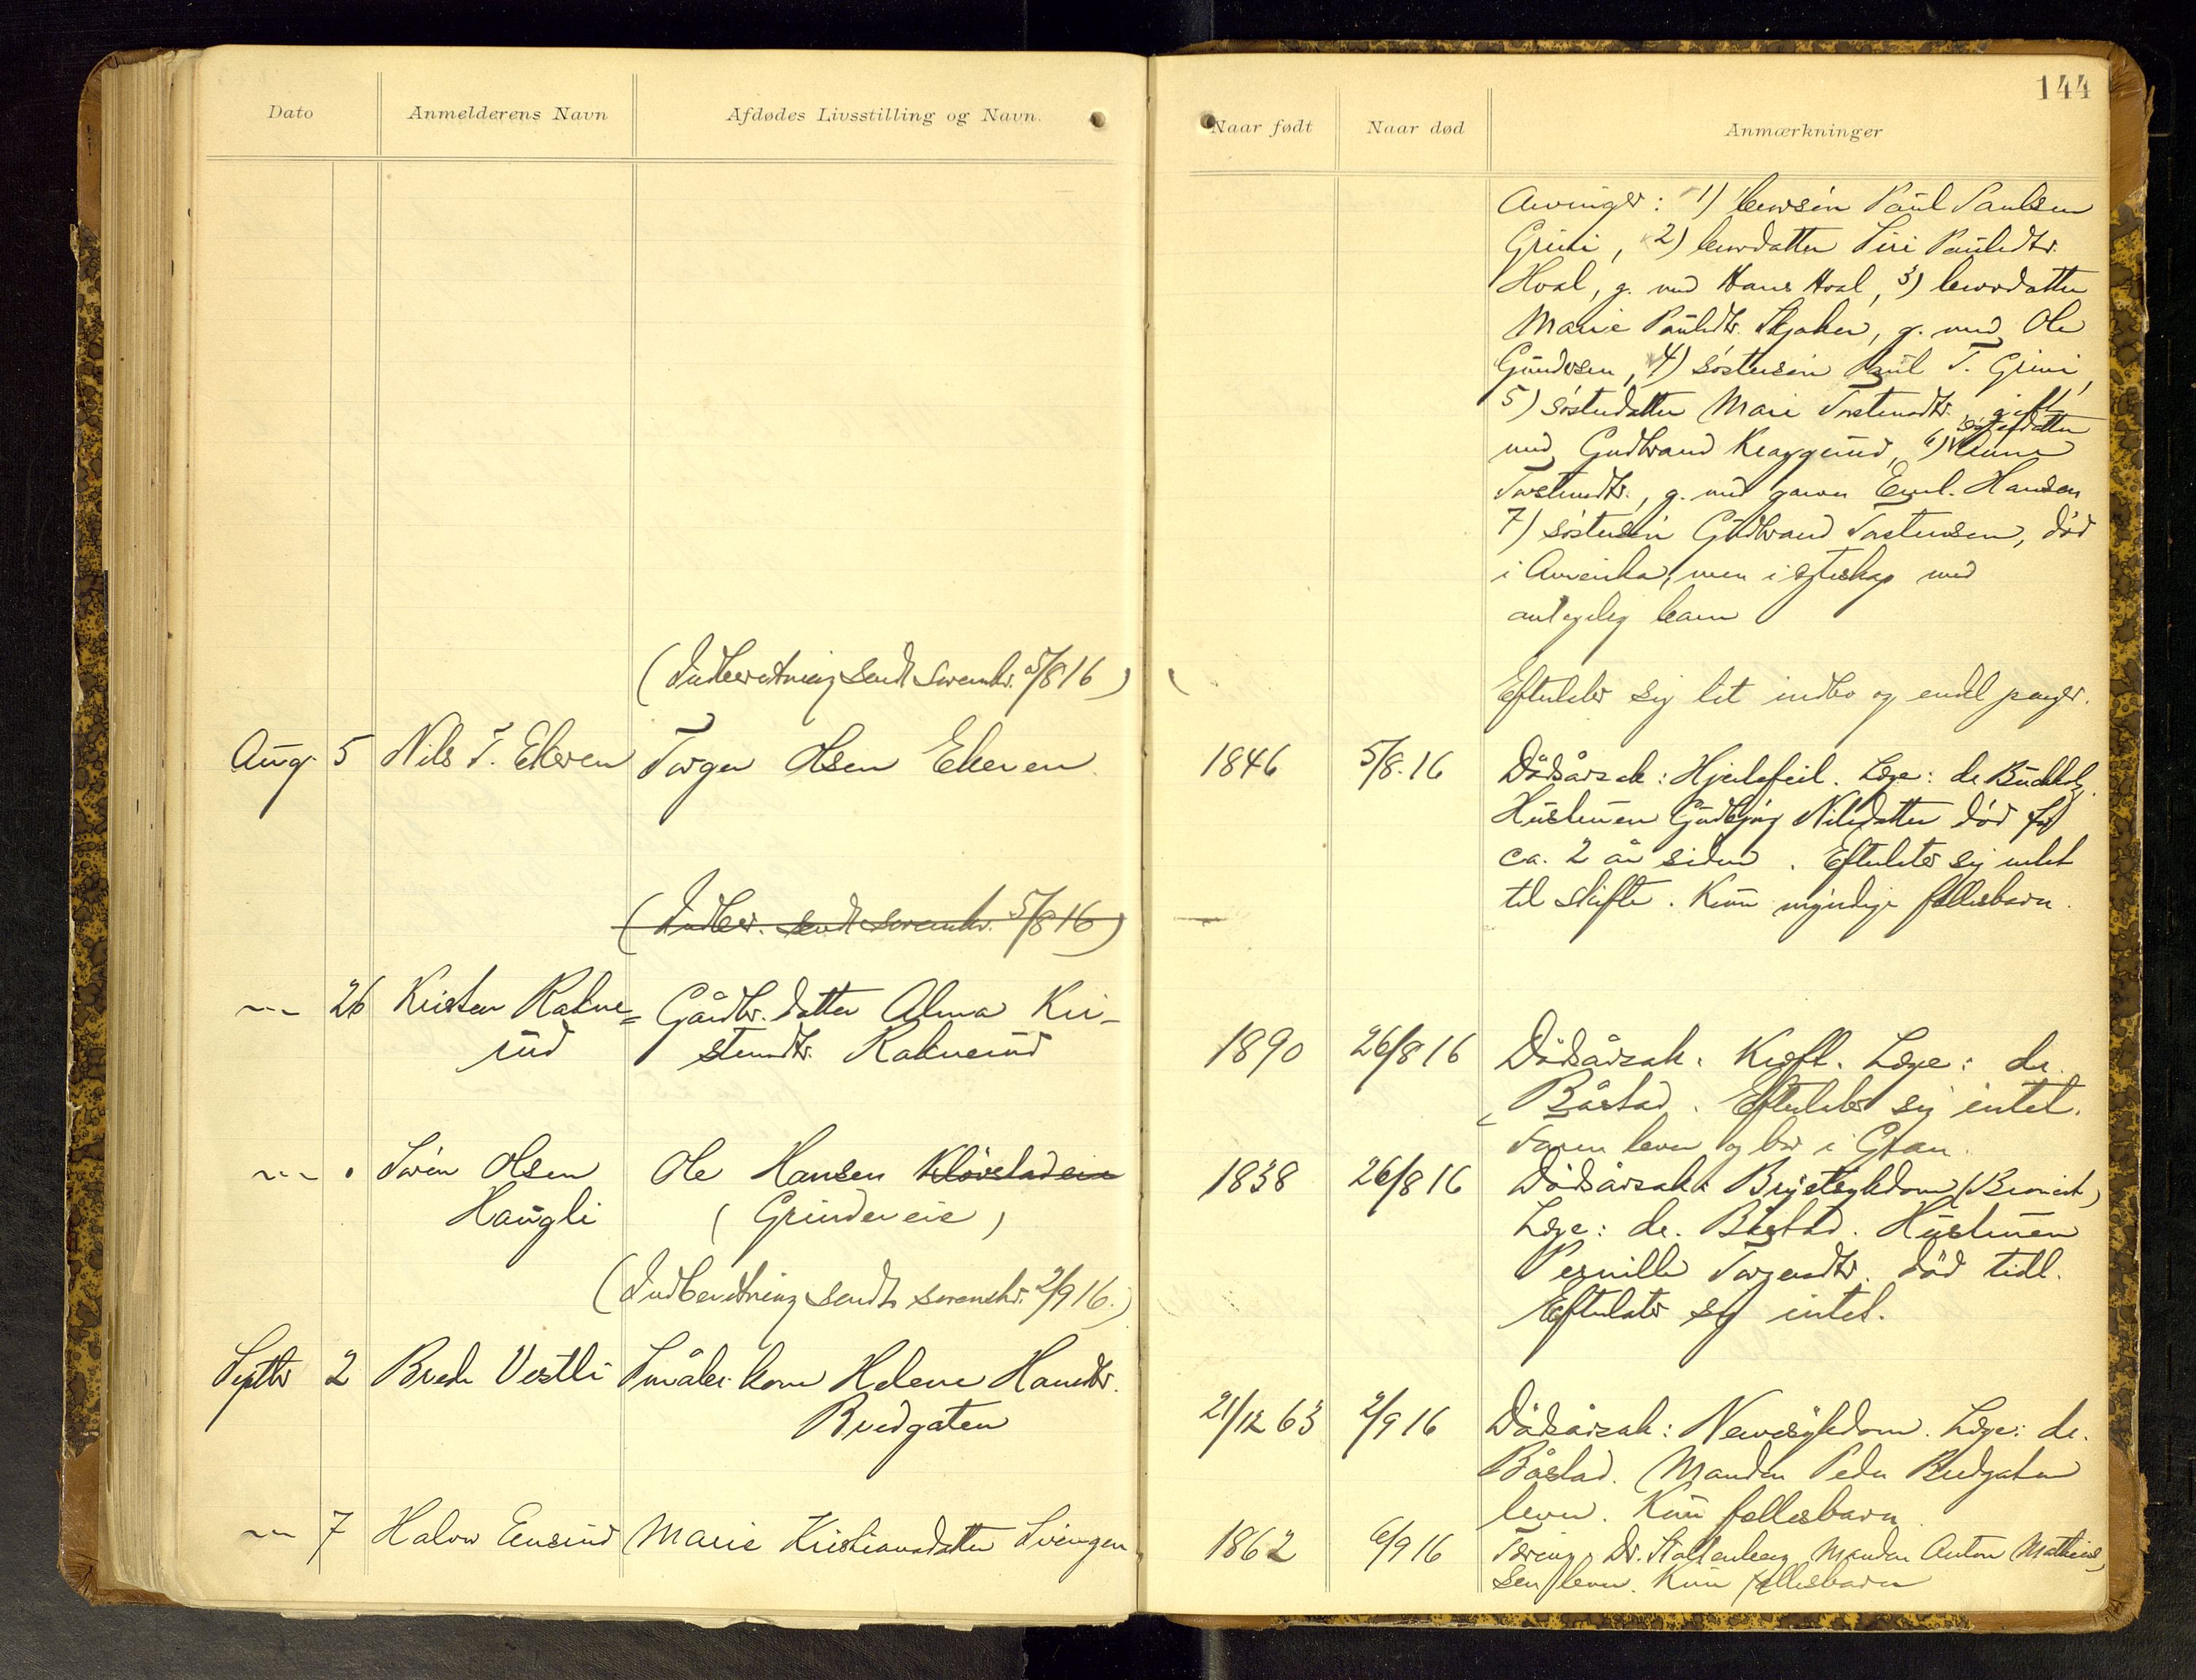 Dato
Anmelderens Navn
Afdødes Livsstilling og Navn.
(Indberetning sendt sorenskr. 5/8 16)
Aug. 5 Nils T. Ekeren Torger Olsen Ekeren.
(Indber. sendt sorenskr. 5/8 16)
—"— 26 Kristen Rakne= Gårdbr. datter Alma Kri-
rud stendtr. Raknerud
—"— " Søren Olsen Ole Hansen Kløvstadeie
Haugli (Grindereie)
(Indberetning sendt sorenskr. 2/9 16.)
Septbr 2 Brede Vestli Småbr. kone Helene Hansdtr.
Bredgaten
—"— 7 Halvor Ensrud Marie Kristiansdatter Svingen
144
Naar født
Naar død
Anmærkninger
Arvinger: 1) brorsøn Paul Paulsen
Grini, 2) brordatter Siri Paulsdtr.
Hval, g. med Hans Hval, 3) brordatter
Marie Paulsdtr. g. med Ole
Gundersen, 4) søstersøn Paul T. Grini,
5) søsterdatter Mari Torstensdtr. gift
søsterdatter
med Gudbrand 6) Anne
Torstensdtr., g. med Hansen
7) søstersøn Gudbrand Torstensen, død
i Amerika, men i egteskap med
antagelig barn
Efterlater sig litt indbo og endel penger.
1846 5/8.16 Dødsårsak: Hjertefeil. Læge: dr. Buchholz.
Hustruen Gudbjørg Nilsdatter død for
ca. 2 år siden. Efterlater sig intet
til skifte. Kun myndige fellesbarn.
1890 26/8 16 Dødsårsak: Kreft. Læge: dr.
Båstad. Efterlater sig intet.
Faren lever og bor i Gran.
1838 26/8 16 Dødsårsak: Brystsykdom (Bronkit)
Læge: dr. Båstad. Hustruen
Pernille Torgersdtr. død tidl.
Efterlater sig intet.
21/12 63 2/9 16 Dødsårsak: Nervesykdom. Læge: dr.
Båstad. Manden Peder Bredgaten
lever. Kun fellesbarn.
1862 6/9 16 Tæring. Dr. Stoltenberg. Manden Anton Mathias
sen lever. Kun fellesbarn